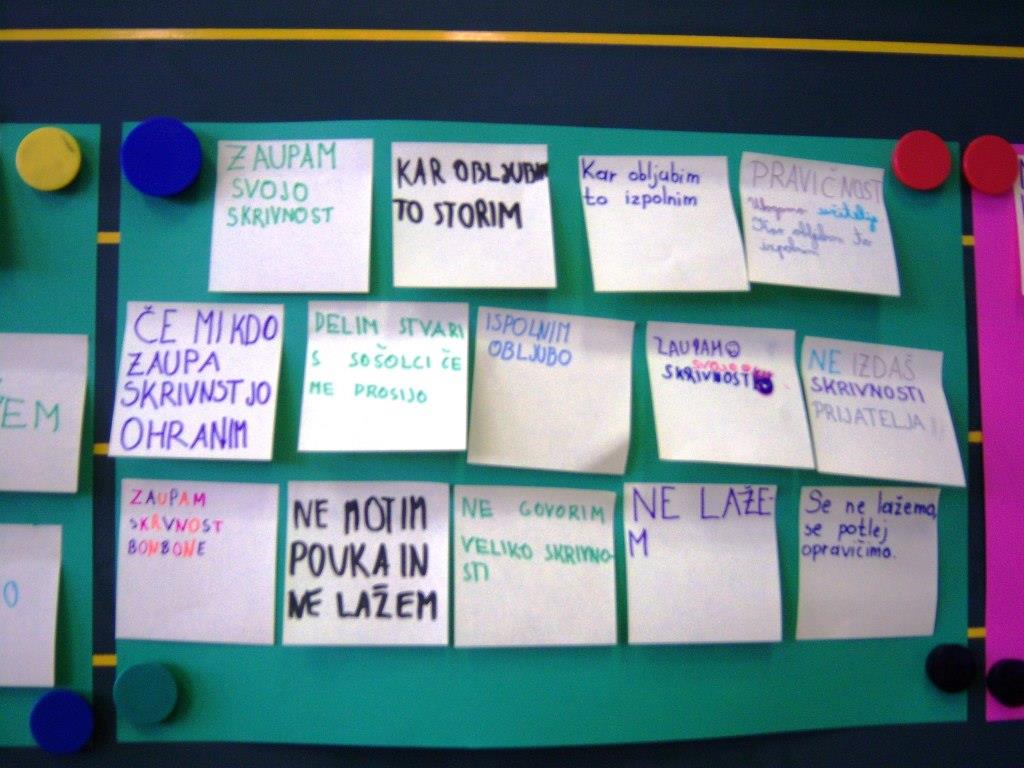 ZAUPAM
SVOJO
SKRIVNOST
KAR OBLJUBIM
TO STORIM
Kar obljubim
to izpolnim
PRAVIČNOST
Ubogamo učitelje
Kar obljubim to
izpolnim
ČE MI KDO
ZAUPA
SKRIVNSTJO
OHRANIM
DELIM STVARI
S SOŠOLCI ČE
ME PROSIJO
ISPOLNIM
OBLJUBO
ZAUPAM
SVOJO
SKRIVNOST
NE IZDAŠ
SKRIVNOSTI
PRIJATELJA!!
ZAUPAM
SKRVNOST
BONBONE
NE MOTIM
POUKA IN
NE LAŽEM
NE GOVORIM
VELIKO SKRIVNO-
STI
NE LAŽE-
M
Se ne lažemo,
se potlej
opravičimo.